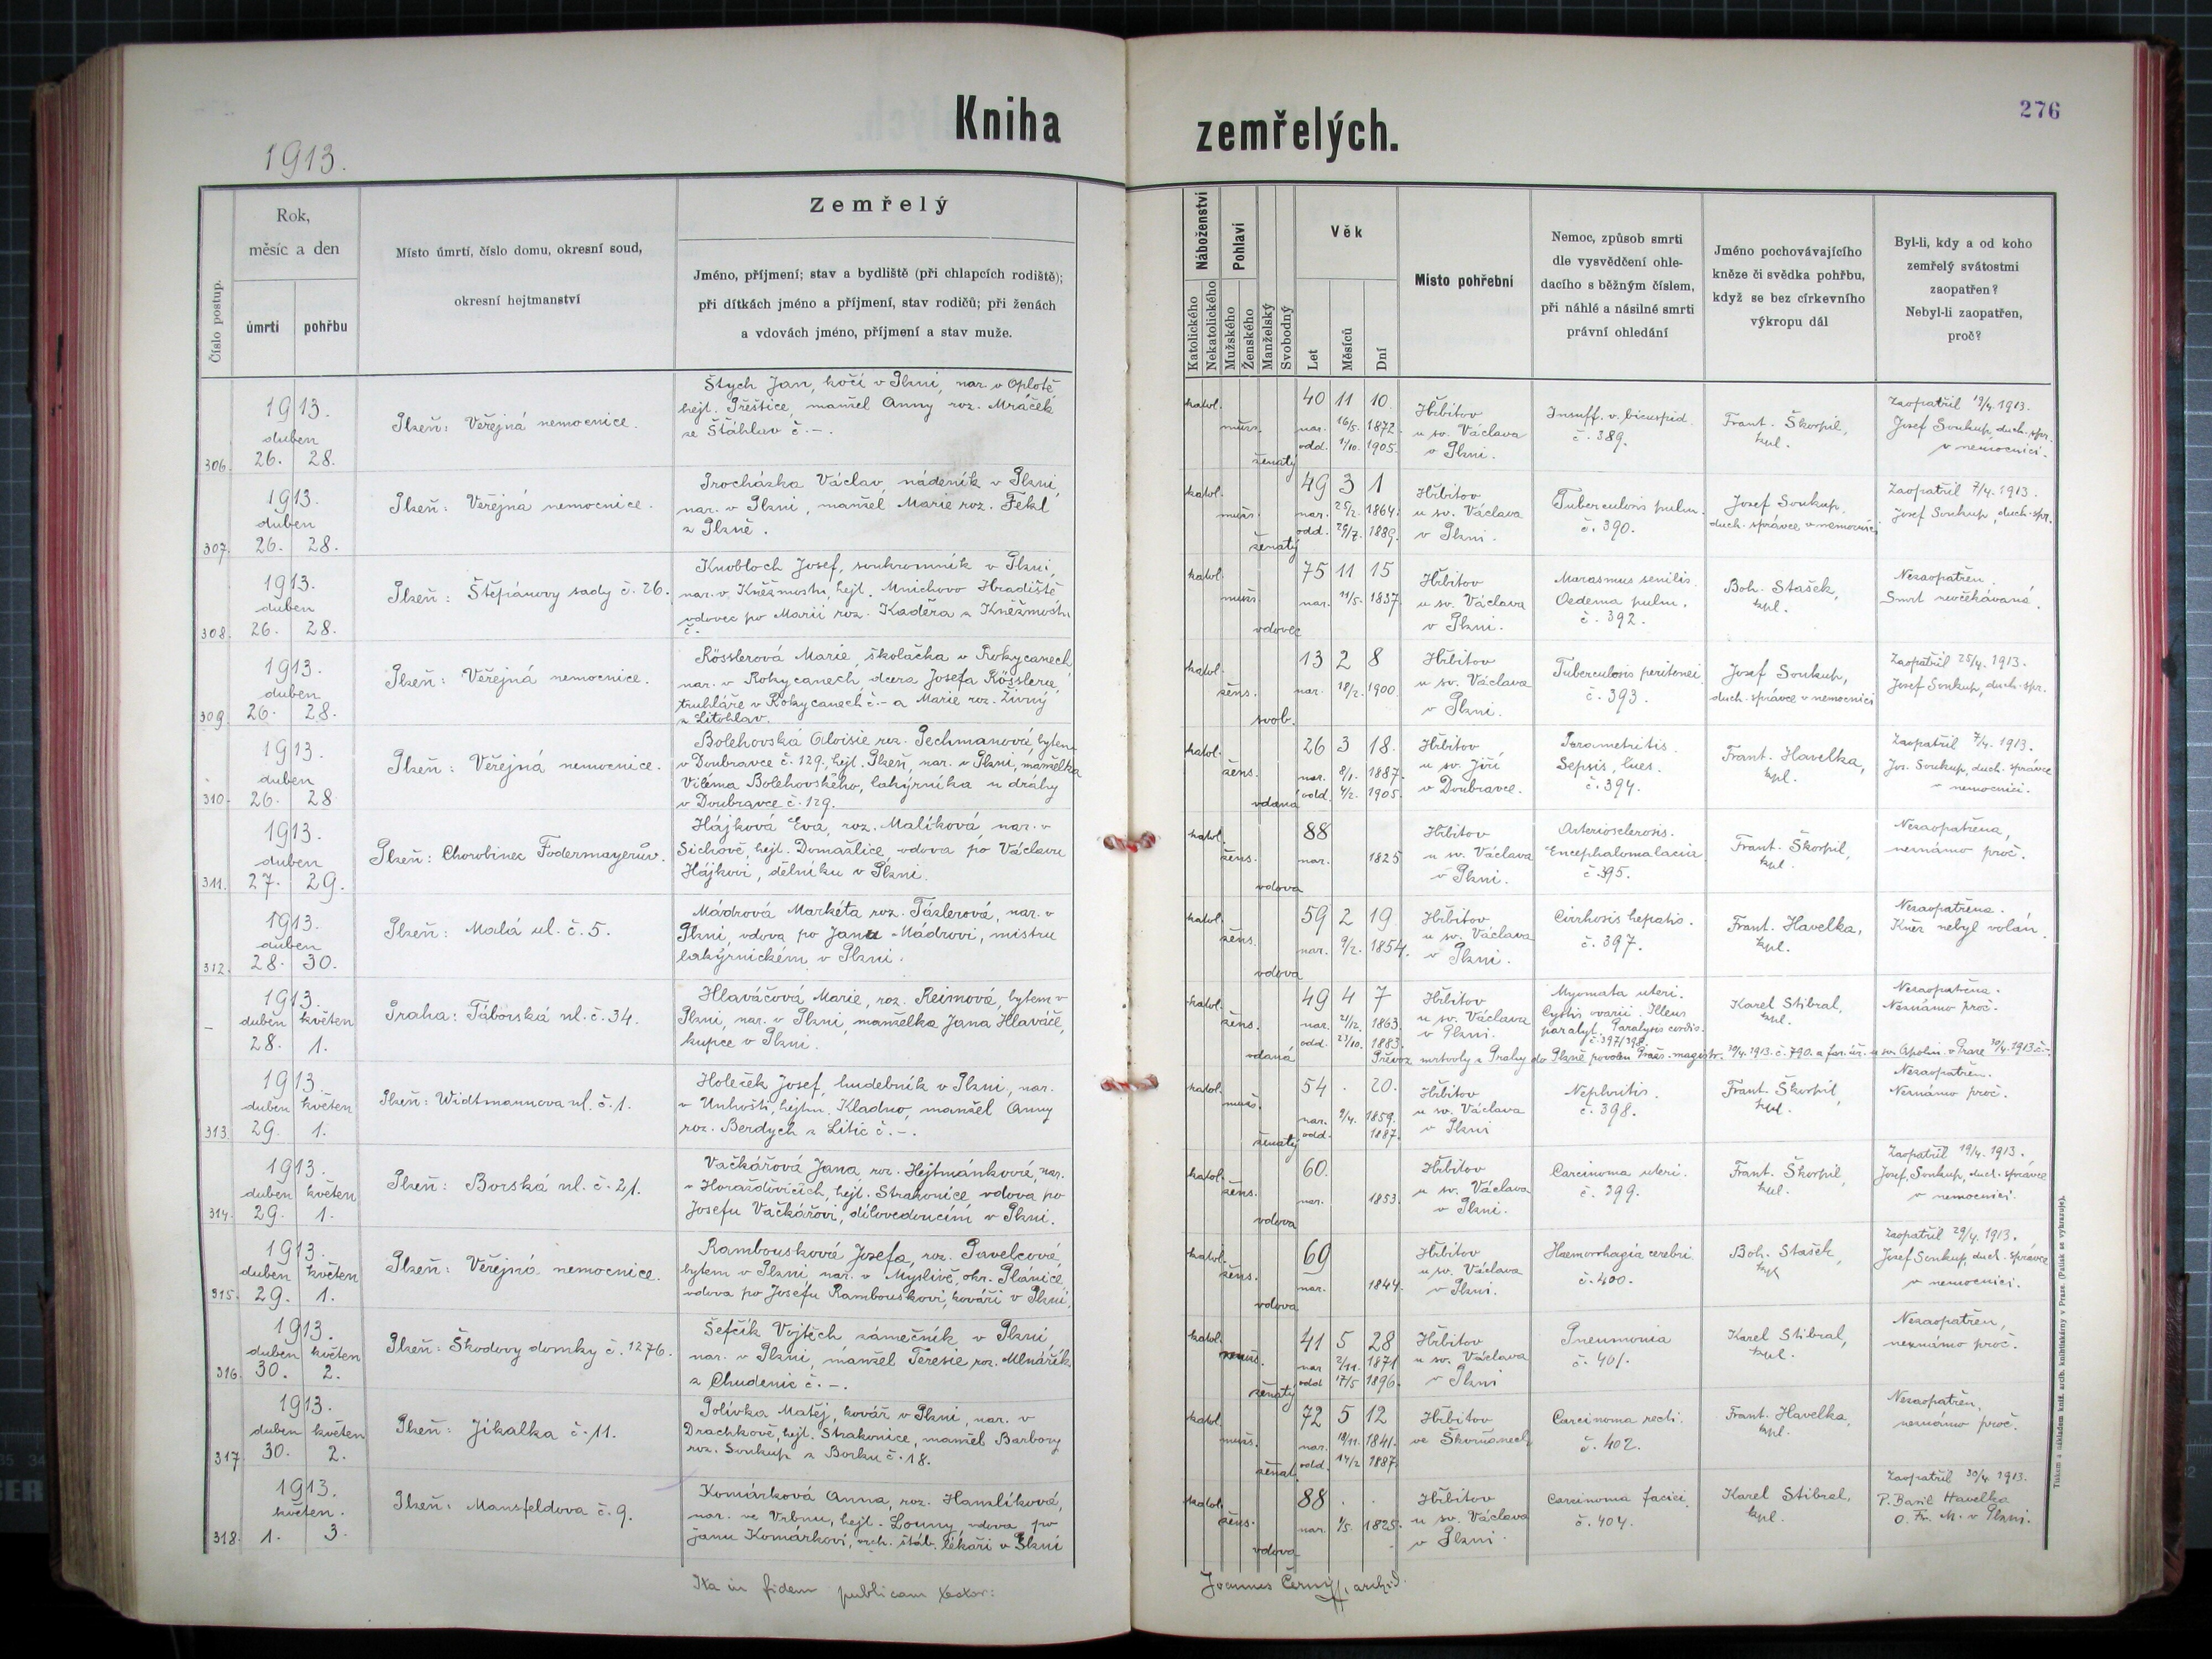 276
Kniha zemřelých.
1913.
Číslo postup.
Rok,
měsíc a den
úmrtí
pohřbu
Místo úmrtí, číslo domu, okresní soud,
okresní hejtmanství
Zemřelý
Jméno, příjmení; stav a bydliště (při chlapcích rodiště);
při dítkách jméno a příjmení, stav rodičů; při ženách
a vdovách jméno, příjmení a stav muže.
Náboženství
Katolického
Nekatolického
Pohlaví
Mužského
Ženského
Manželský
Svobodný
Věk
Let
Měsíců
Dní
Místo pohřební
Nemoc, způsob smrti
dle vysvědčení ohle-
dacího s běžným číslem,
při náhlé a násilné smrti
právní ohledání
Jméno pochovávajícího
kněze či svědka pohřbu,
když se bez církevního
výkropu dál
Byl-li, kdy a od koho
zemřelý svátostmi
zaopatřen?
Nebyl-li zaopatřen,
proč?
306.
1913.
duben
26. 28.
Plzeň: Veřejná nemocnice.
Štych Jan, kočí v Plzni, nar. v Oplotě
hejt. Přeštice, manžel Anny roz. Mráček
ze Šťáhlav č. -.
katol.
mužs.
ženatý
40 11 10.
nar. 16/5. 1872.
odd. 1/10. 1905.
Hřbitov
u sv. Václava
v Plzni.
Insuff. v. bicuspid.
č. 389.
Frant. Škorpil,
kpl.
Zaopatřil 19/4. 1913.
Josef Soukup, duch. spr.
v nemocnici.
307.
1913.
duben
26. 28.
Plzeň: Veřejná nemocnice.
Procházka Václav, nádeník v Plzni,
nar. v Plzni, manžel Marie roz. Fekl
z Plzně.
katol.
mužs.
ženatý
49 3 1
nar. 25/2. 1864.
odd. 29/7. 1889.
Hřbitov
u sv. Václava
v Plzni.
Tuberculosis pulm.
č. 390.
Josef Soukup,
duch. správce v nemocnici
Zaopatřil 7/4. 1913.
Josef Soukup, duch. spr.
308.
1913.
duben
26. 28.
Plzeň: Štěpánovy sady č. 26.
Knobloch Josef, soukromník v Plzni,
nar. v Kněžmostu, hejt. Mnichovo Hradiště
vdovec po Marii roz. Kaděra z Kněžmostu
č.
katol.
mužs.
vdovec
75 11 15
nar. 11/5. 1837.
Hřbitov
u sv. Václava
v Plzni.
Marasmus senilis.
Oedema pulm.
č. 392.
Boh. Stašek,
kpl.
Nezaopatřen.
Smrt neočekávaná.
309.
1913.
duben
26. 28.
Plzeň: Veřejná nemocnice.
Rösslerová Marie, školačka v Rokycanech,
nar. v Rokycanech, dcera Josefa Rösslera,
truhláře v Rokycanech č. - a Marie roz. Živný
z Litohlav.
katol.
žens.
svob.
13 2 8
nar. 18/2. 1900.
Hřbitov
u sv. Václava
v Plzni.
Tuberculosis peritonei
č. 393.
Josef Soukup,
duch. správce v nemocnici
Zaopatřil 25/4. 1913.
Josef Soukup, duch. spr.
310.
1913.
duben
26. 28
Plzeň: Veřejná nemocnice.
Bolehovská Aloisie roz. Pechmanová, bytem
v Doubravce č. 129., hejt. Plzeň, nar. v Plzni, manželka
Viléma Bolehovského, lakýrníka u dráhy
v Doubravce č. 129.
katol.
žens.
vdaná
26 3 18.
nar. 8/1. 1887.
odd. 4/2. 1905.
Hřbitov
u sv. Jiří
v Doubravce.
Parametritis.
Sepsis, lues.
č. 394.
Frant. Havelka,
kpl.
Zaopatřil 7/4. 1913.
Jos. Soukup, duch. správce
v nemocnici.
311.
1913.
duben
27. 29.
Plzeň: Chorobinec Fodermayerův.
Hájková Eva, roz. Malíková, nar. v
Sichově, hejt. Domažlice, vdova po Václavu
Hájkovi, dělníku v Plzni.
katol.
žens.
vdova
88
nar. 1825
Hřbitov
u sv. Václava
v Plzni.
Arteriosclerosis.
Encephalomalacia.
č. 395.
Frant. Škorpil,
kpl.
Nezaopatřena,
neznámo proč.
312.
1913.
duben
28. 30.
Plzeň: Malá ul. č. 5.
Mádrová Markéta roz. Tázlerová, nar. v
Plzni, vdova po Janu Mádrovi, mistru
lakýrnickém v Plzni.
katol.
žens.
vdova
59 2 19
nar. 9/2. 1854.
Hřbitov
u sv. Václava
v Plzni.
Cirrhosis hepatis.
č. 397.
Frant. Havelka,
kpl.
Nezaopatřena.
Kněz nebyl volán.
-
1913.
duben květen
28. 1.
Praha: Táborská ul. č. 34.
Hlaváčová Marie, roz. Reimová, bytem v
Plzni, nar. v Plzni, manželka Jana Hlaváče,
kupce v Plzni.
katol.
žens.
vdaná
49 4 7
nar. 21/12. 1863.
odd. 23/10. 1883.
Hřbitov
u sv. Václava
v Plzni.
Myomata uteri.
Cystis ovarii. Illeus
paralyt. Paralysis cordis.
č. 397/398.
Karel Stibral,
kpl.
Nezaopatřena.
Neznámo proč.
Převoz mrtvoly z Prahy do Plzně povolen Praž. magistr. 30/4. 1913. č. 790. a far. úř. u sv. Apolin. v Praze 30/4. 1913. č. -.
313.
1913.
duben květen
29. 1.
Plzeň: Widtmannova ul. č. 1.
Holeček Josef, hudebník v Plzni, nar.
v Unhošti, hejtm. Kladno, manžel Anny
roz. Berdych z Litic č. -.
katol.
mužs.
ženatý
54 . 20.
nar. 9/4. 1859.
odd. 1887.
Hřbitov
u sv. Václava
v Plzni
Nephritis.
č. 398.
Frant. Škorpil,
kpl.
Nezaopatřen.
Neznámo proč.
314.
1913.
duben květen
29. 1.
Plzeň: Borská ul. č. 21.
Vačkářová Jana, roz. Hejtmánková, nar.
v Horažďovicích, hejt. Strakonice vdova po
Josefu Vačkářovi, dílovedoucím v Plzni.
katol.
žens.
vdova
60.
nar. 1853.
Hřbitov
u sv. Václava
v Plzni.
Carcinoma uteri.
č. 399.
Frant. Škorpil,
kpl.
Zaopatřil 19/4. 1913.
Josef Soukup, duch. správce
v nemocnici.
315.
1913.
duben květen
29. 1.
Plzeň: Veřejná nemocnice.
Rambousková Josefa, roz. Pavelcová,
bytem v Plzni, nar. v Myslivě, okr. Plánice,
vdova po Josefu Rambouskovi, kováři v Plzni.
katol.
žens.
vdova
69
nar. 1844.
Hřbitov
u sv. Václava
v Plzni.
Haemorrhagia cerebri
č. 400.
Boh. Stašek,
kpl
Zaopatřil 29/4. 1913.
Josef Soukup, duch. správce
v nemocnici.
316.
1913.
duben květen
30. 2.
Plzeň: Škodovy domky č. 1276.
Šefčík Vojtěch, zámečník v Plzni,
nar. v Plzni, manžel Teresie roz. Mlnářík
z Chudenic č. -.
katol.
mužs.
ženatý
41 5 28
nar. 2/11. 1871
odd. 17/5 1896.
Hřbitov
u sv. Václava
v Plzni
Pneumonia
č. 401.
Karel Stibral,
kpl.
Nezaopatřen,
neznámo proč.
317.
1913.
duben květen
30. 2.
Plzeň: Jíkalka č. 11.
Polívka Matěj, kovář v Plzni, nar. v
Drachkově, hejt. Strakonice, manžel Barbory
roz. Soukup z Borku č. 18.
katol.
mužs.
ženat.
72 5 12
nar. 19/11. 1841.
odd. 14/2 1887.
Hřbitov
ve Škvrňanech
Carcinoma recti.
č. 402.
Frant. Havelka,
kpl.
Nezaopatřen,
neznámo proč.
318.
1913.
květen.
1. 3.
Plzeň: Mansfeldova č. 9.
Komárková Anna, roz. Hanzlíková,
nar. ve Vrbnu, hejt. Louny, vdova po
Janu Komárkovi, vrch. štáb. lékaři v Plzni
katol.
žens.
vdova
88 . .
nar. 1/5. 1825.
Hřbitov
u sv. Václava
v Plzni.
Carcinoma faciei
č. 404.
Karel Stibral,
kpl.
Zaopatřil 30/4. 1913.
P. Basil Havelka
O. Fr. M. v Plzni.
Ita in fidem publicam
Joannes Černý, archid.